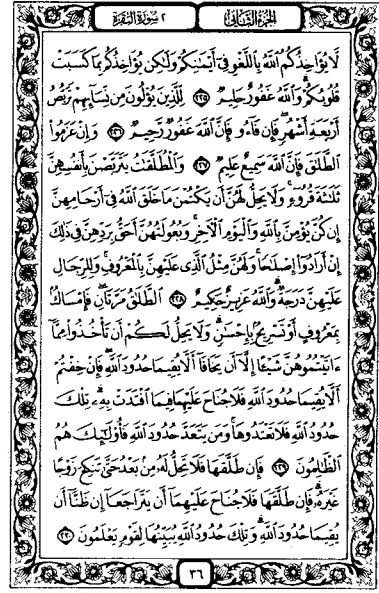 الجزء الثاني ٢ سورة البقرة
لَا يُؤَاخِذُكُمُ اللَّهُ بِاللَّغْوِ فِي أَيْمَانِكُمْ وَلَٰكِن يُؤَاخِذُكُم بِمَا كَسَبَتْ
قُلُوبُكُمْ وَاللَّهُ غَفُورٌ حَلِيمٌ ٢٢٥ لِّلَّذِينَ يُؤْلُونَ مِن نِّسَائِهِمْ تَرَبُّصُ
أَرْبَعَةِ أَشْهُرٍ فَإِن فَاءُو فَإِنَّ اللَّهَ غَفُورٌ رَّحِيمٌ ٢٢٦ وَإِنْ عَزَمُوا
الطَّلَاقَ فَإِنَّ اللَّهَ سَمِيعٌ عَلِيمٌ ٢٢٧ وَالْمُطَلَّقَاتُ يَتَرَبَّصْنَ بِأَنفُسِهِنَّ
ثَلَاثَةَ قُرُوءٍ وَلَا يَحِلُّ لَهُنَّ أَن يَكْتُمْنَ مَا خَلَقَ اللَّهُ فِي أَرْحَامِهِنَّ
إِن كُنَّ يُؤْمِنَّ بِاللَّهِ وَالْيَوْمِ الْآخِرِ وَبُعُولَتُهُنَّ أَحَقُّ بِرَدِّهِنَّ فِي ذَٰلِكَ
إِنْ أَرَادُوا إِصْلَاحًا وَلَهُنَّ مِثْلُ الَّذِي عَلَيْهِنَّ بِالْمَعْرُوفِ وَلِلرِّجَالِ
عَلَيْهِنَّ دَرَجَةٌ وَاللَّهُ عَزِيزٌ حَكِيمٌ ٢٢٨ الطَّلَاقُ مَرَّتَانِ فَإِمْسَاكٌ
بِمَعْرُوفٍ أَوْ تَسْرِيحٌ بِإِحْسَانٍ وَلَا يَحِلُّ لَكُمْ أَن تَأْخُذُوا مِمَّا
ءَاتَيْتُمُوهُنَّ شَيْئًا إِلَّا أَن يَخَافَا أَلَّا يُقِيمَا حُدُودَ اللَّهِ فَإِنْ خِفْتُمْ
أَلَّا يُقِيمَا حُدُودَ اللَّهِ فَلَا جُنَاحَ عَلَيْهِمَا فِيمَا افْتَدَتْ بِهِ تِلْكَ
حُدُودُ اللَّهِ فَلَا تَعْتَدُوهَا وَمَن يَتَعَدَّ حُدُودَ اللَّهِ فَأُولَٰئِكَ هُمُ
الظَّالِمُونَ ٢٢٩ فَإِن طَلَّقَهَا فَلَا تَحِلُّ لَهُ مِن بَعْدُ حَتَّىٰ تَنكِحَ زَوْجًا
غَيْرَهُ فَإِن طَلَّقَهَا فَلَا جُنَاحَ عَلَيْهِمَا أَن يَتَرَاجَعَا إِن ظَنَّا أَن
يُقِيمَا حُدُودَ اللَّهِ وَتِلْكَ حُدُودُ اللَّهِ يُبَيِّنُهَا لِقَوْمٍ يَعْلَمُونَ ٢٣٠
٣٦